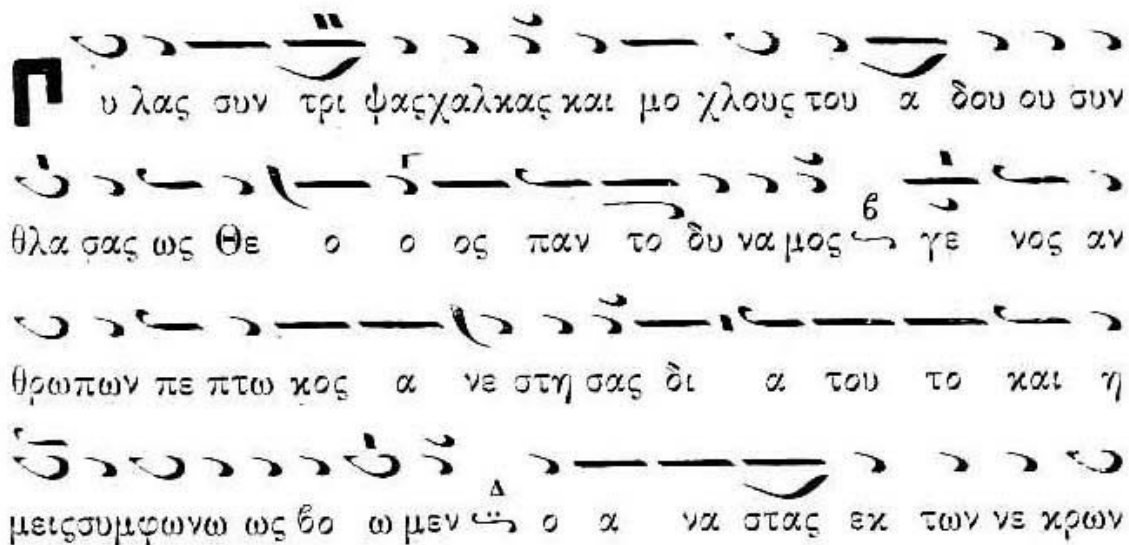 Πυ λας συν τρι ψας χαλκας και μο χλους του α δου ου συν
θλα σας ως Θε ο ο ος παν το δυ να μος β γε νος αν
θρωπων πε πτω κος α νε στη σας δι α του το και η
μεις συμφωνω ως βο ω μεν Δ ο α να στας εκ των νε κρων